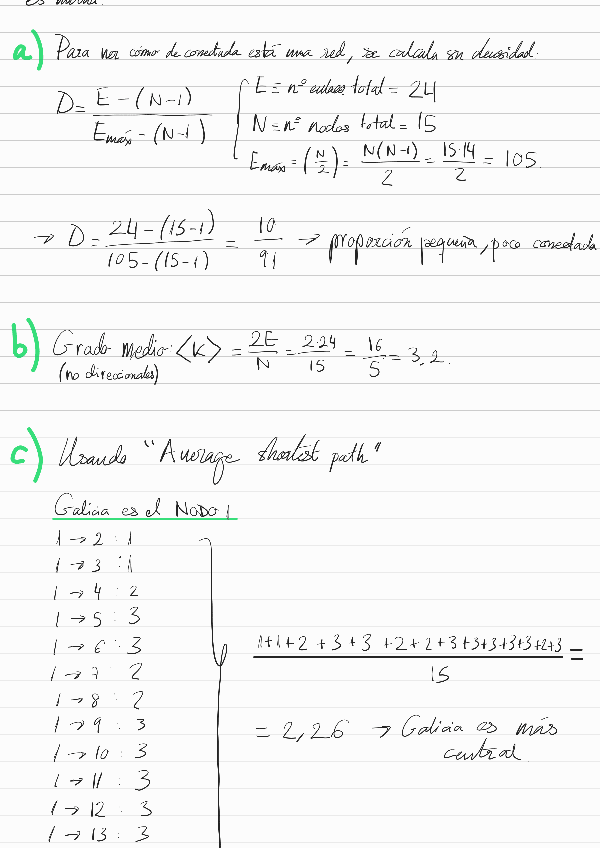 es mínima.
a) Para ver cómo de conectada está una red, se calcula su densidad.
D = E - (N-1) / Emáx - (N-1)
E = nº enlaces total = 24
N = nº nodos total = 15
Emáx = (N/2) = N(N-1)/2 = 15·14/2 = 105
→ D = 24-(15-1) / 105-(15-1) = 10/91 → proporción pequeña, poco conectada
b) Grado medio: <K> = 2E/N = 2·24/15 = 16/5 = 3.2.
(no direccionales)
c) Usando "Average shortest path"
Galicia es el NODO 1
1 → 2 : 1
1 → 3 : 1
1 → 4 : 2
1 → 5 : 3
1 → 6 : 3
1 → 7 : 2
1 → 8 : 2
1 → 9 : 3
1 → 10 : 3
1 → 11 : 3
1 → 12 : 3
1 → 13 : 3
1+1+2+3+3+2+2+3+3+3+3+3+2+3 / 15 =
= 2,26 → Galicia es más
central.